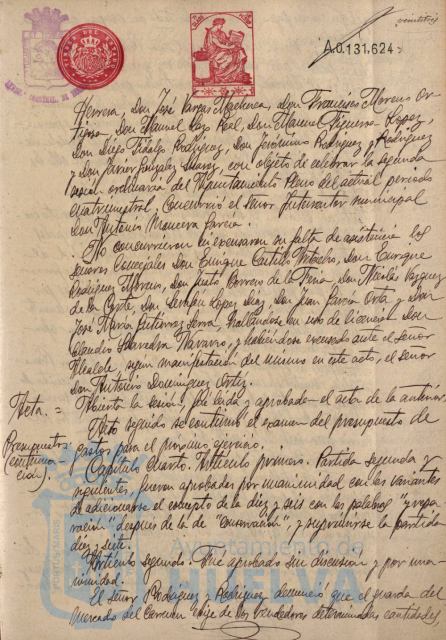 veintitres
A.0.131,624
Herrera, Don José Vargas Machuca, Don Francisco Moreno Or-
tega, Don Manuel Paz Real, Don Manuel Figueroa Lopez,
Don Diego Fidalgo Rodriguez, Don Jerónimo Rodriguez y Rodriguez
y Don Javier Gonzalez Suarez, con objeto de celebrar la segunda
sesion ordinaria del Ayuntamiento Pleno del actual periodo
cuatrimestral. Concurrió el señor Interventor municipal
Don Antonio Mancera García.
No concurrieron ni excusaron su falta de asistencia los
señores Concejales Don Enrique Castillo, Don Enrique
Rodriguez Moreno, Don Justo Borrero de la Feria, Don Nicolás Vazquez
de la Corte, Don Serafin Lopez Diaz, Don Juan García Orta y Don
José María Gutierrez Serra, hallándose en uso de licencia Don
Claudio Saavedra Navarro, y habiéndose excusado ante el señor
Alcalde, segun manifestación del mismo en este acto, el señor
Don Antonio Dominguez Ortiz.
Acta.= Abierta la sesion fué leida y aprobada el acta de la anterior.
Acto seguido se continuó el examen del presupuesto de
Presupuestos (continuacion). gastos para el proximo ejercicio.
Capitulo cuarto. Articulo primero. Partida segunda y
siguientes, fueron aprobadas por unanimidad con las variantes
de adicionarse el concepto de la diez y seis con las palabras "y repa-
racion" despues de la de "conservacion", y suprimirse la partida
diez y siete.
Articulo segundo. Fué aprobado sin discusion y por una-
nimidad.
El señor Rodriguez y Rodriguez denunció que el guarda del
Mercado del Carmen exige de los vendedores determinadas cantidades
Ayuntamiento de
HUELVA